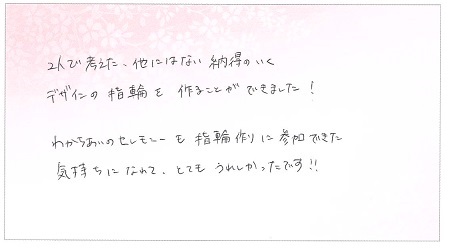 2人で考えた、他にはない納得のいく
デザインの指輪を作ることができました！
わかちあいのセレモニーも指輪作りに参加できた
気持ちになれて、とてもうれしかったです!!